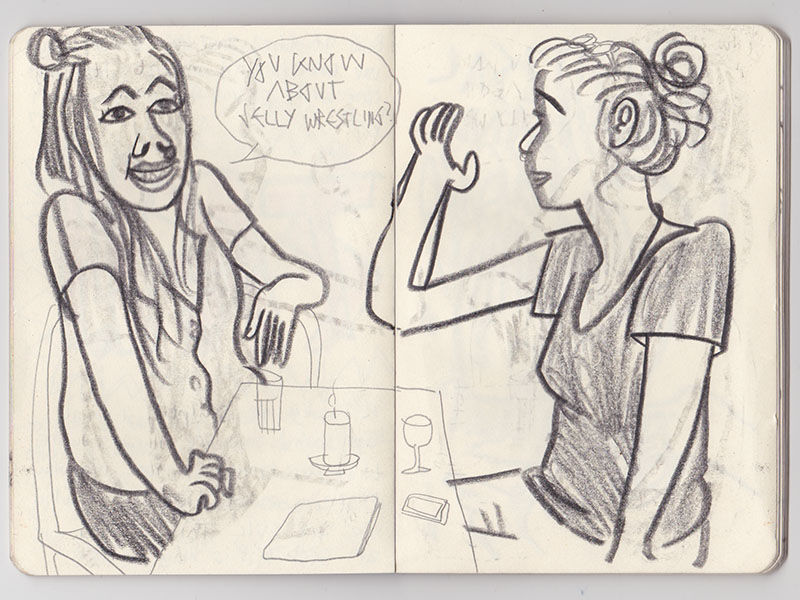 YOU KNOW
ABOUT
JELLY WRESTLING?